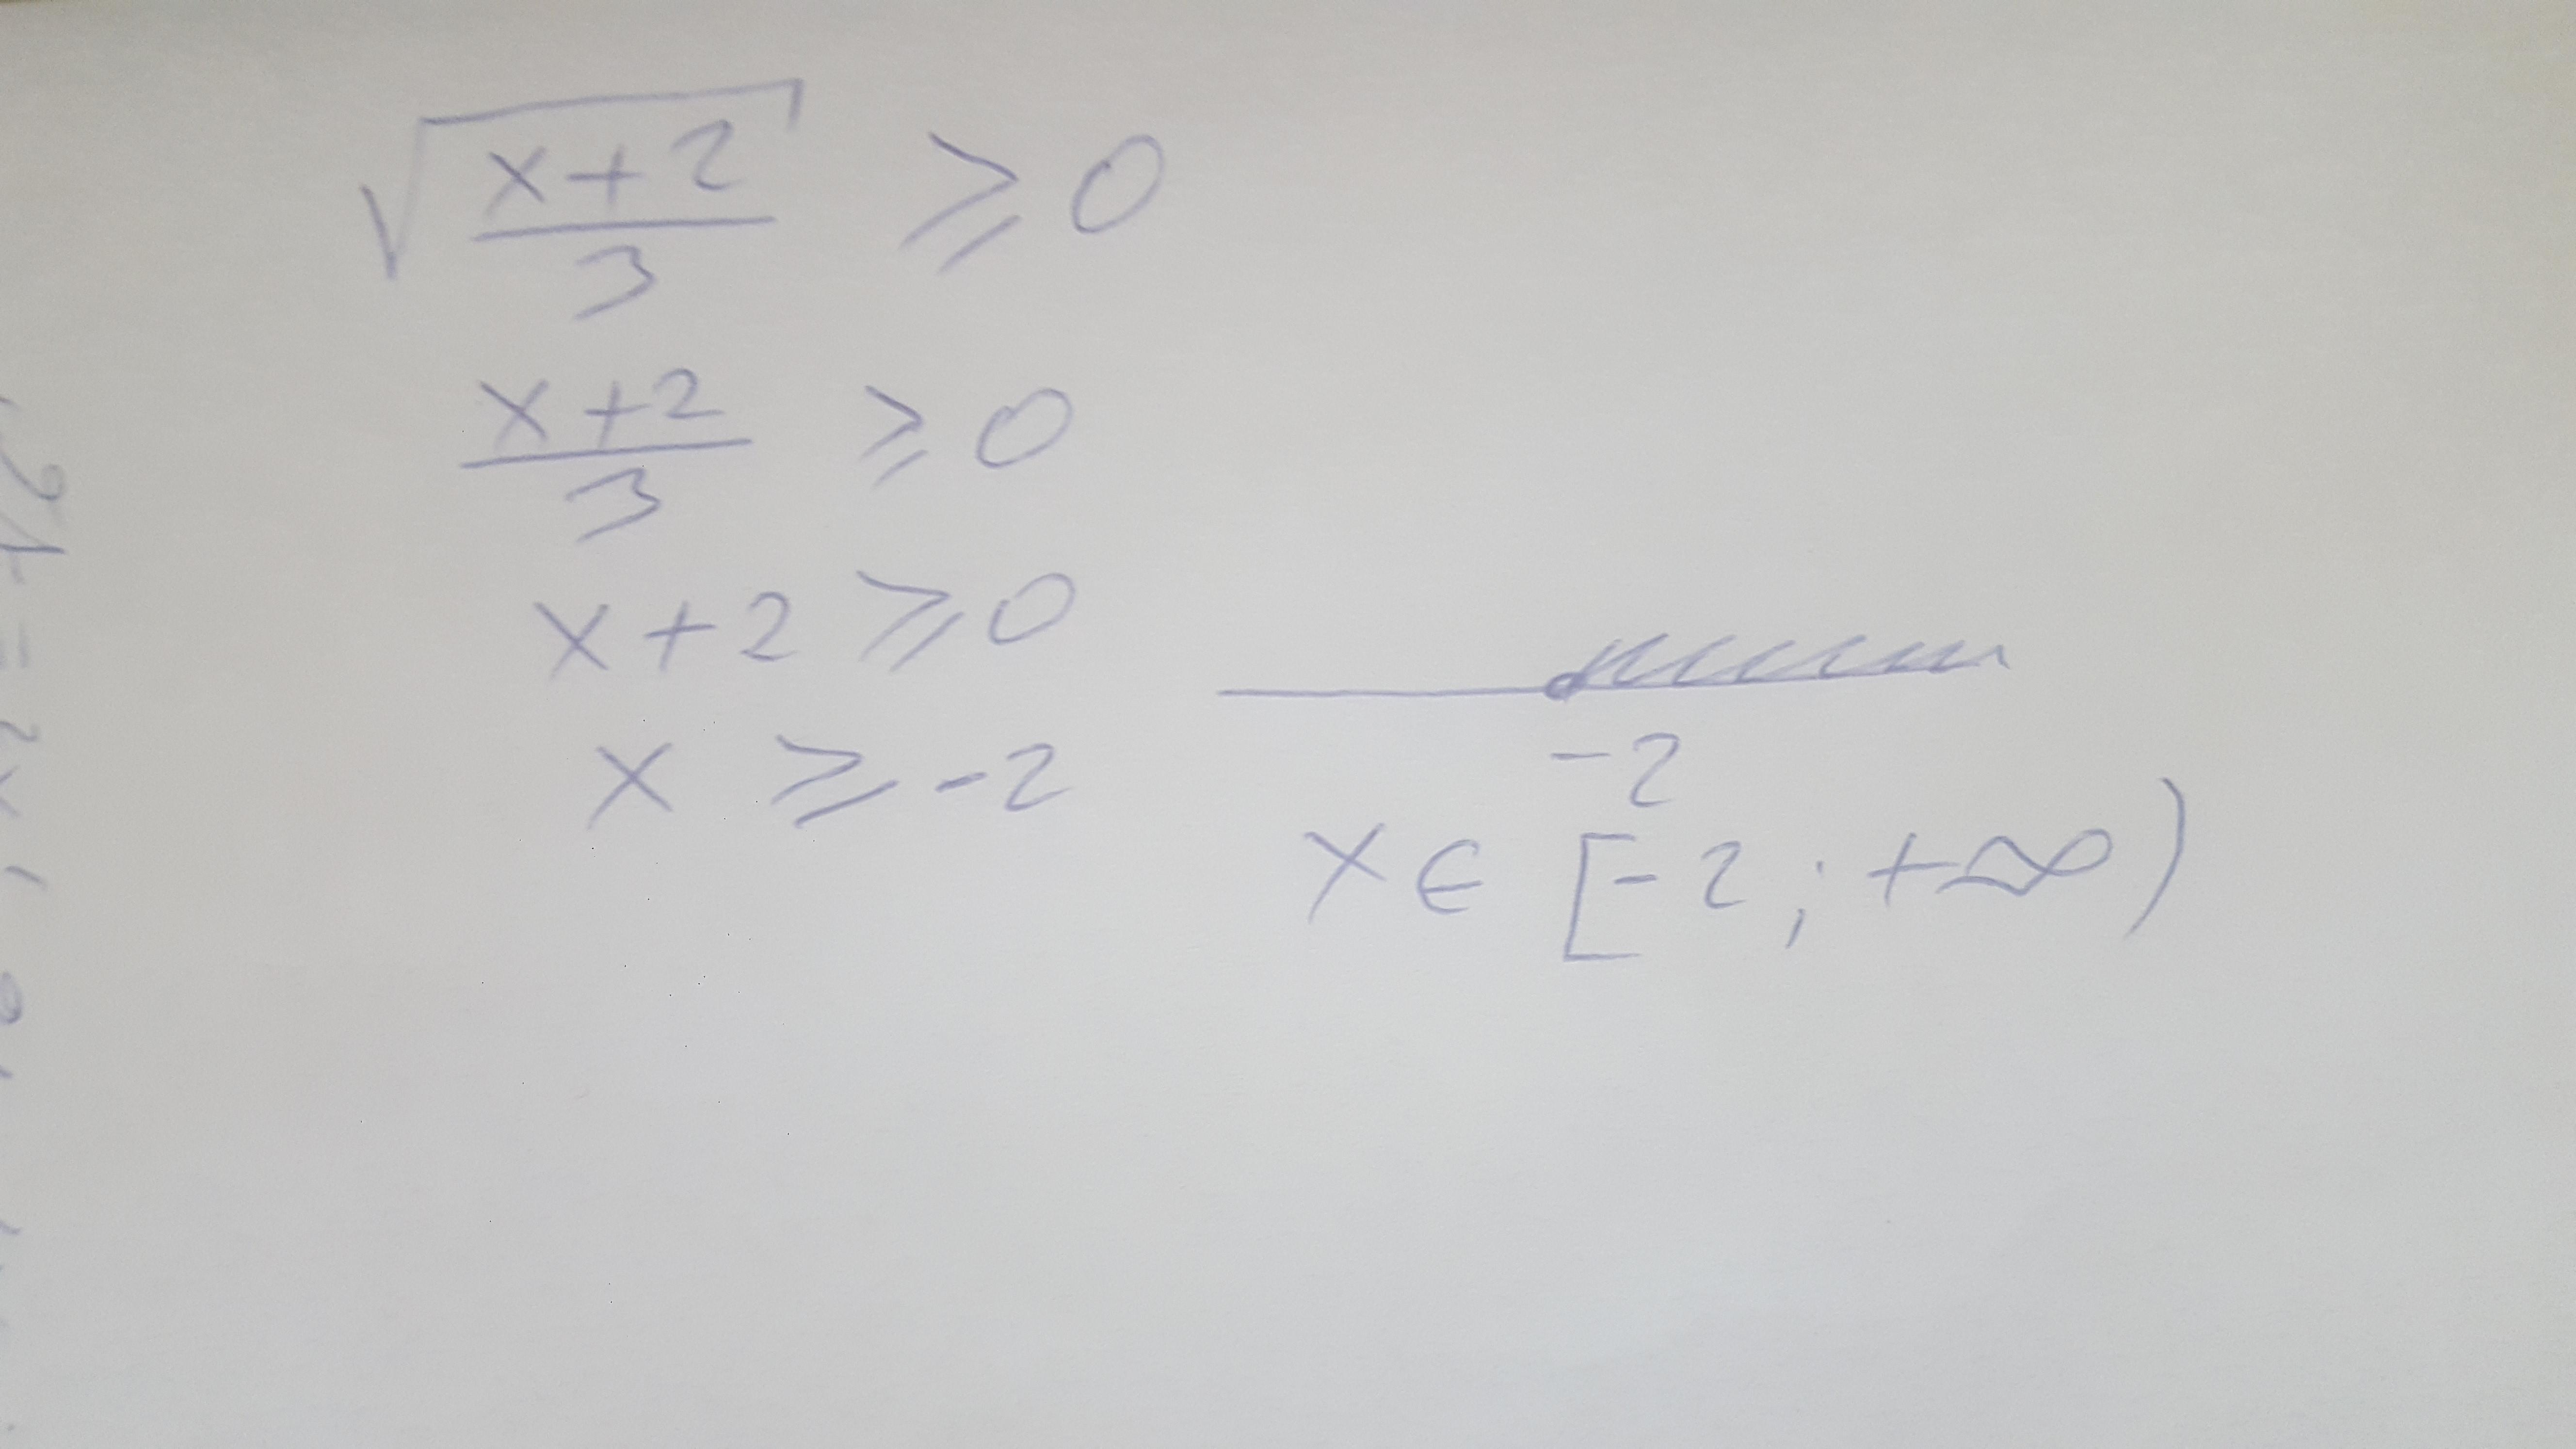 √((x+2)/3) ⩾ 0
(x+2)/3 ⩾ 0
x+2 ⩾ 0
x ⩾ -2
-2
x ∈ [-2; +∞)